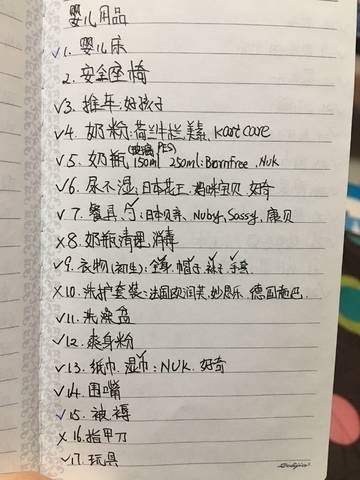 婴儿用品
✓1. 婴儿床
2. 安全座椅
✓3. 推车:好孩子
✓4. 奶粉:荷兰牛栏、美素、Karicare
(玻璃 PES)
✓5. 奶瓶 150ml 250ml: Bornfree, NUK
✓6. 尿不湿:日本花王 妈咪宝贝 好奇
✓7. 餐具、勺✓:日本贝亲、Nuby, Sassy, 康贝
×8. 奶瓶清理、消毒
✓9. 衣物(初生):帽子✓ 袜子✓ 手套✓
×10. 洗护套装:法国 妙思乐 德国
✓11. 洗澡盆
✓12. 爽身粉
✓13. 纸巾 湿巾✓:NUK、好奇
✓14. 围嘴
✓15. 被褥
×16. 指甲刀
✓17. 玩具